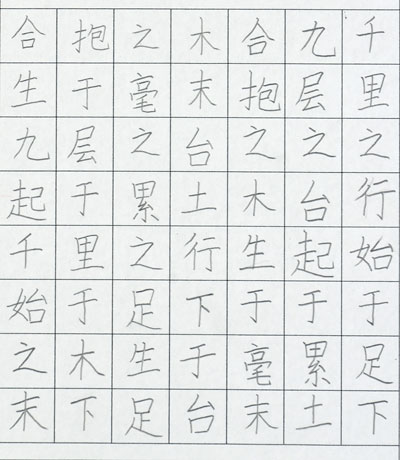 合抱之木合九千
生于毫末抱层里
九层之台之之之
起于累土木台行
千里之行生起始
始于足下于于于
之木生于毫累足
末下足台末土下